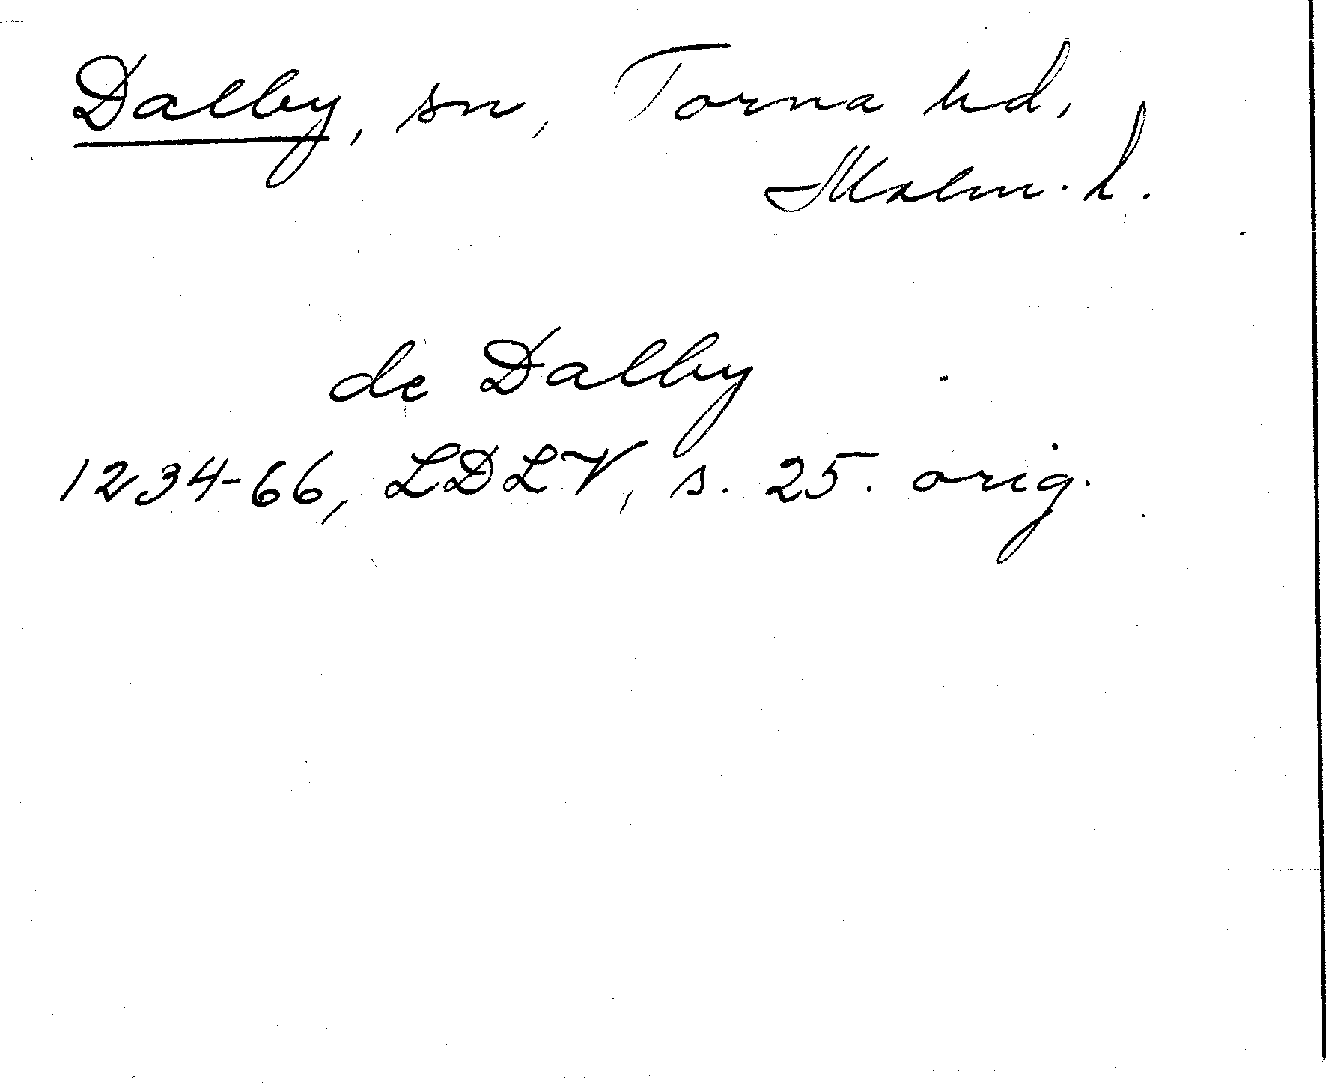 Dalby, sn, Torna hd,
Malm. l.
de Dalby
1234-66, LDLV, s. 25. orig.